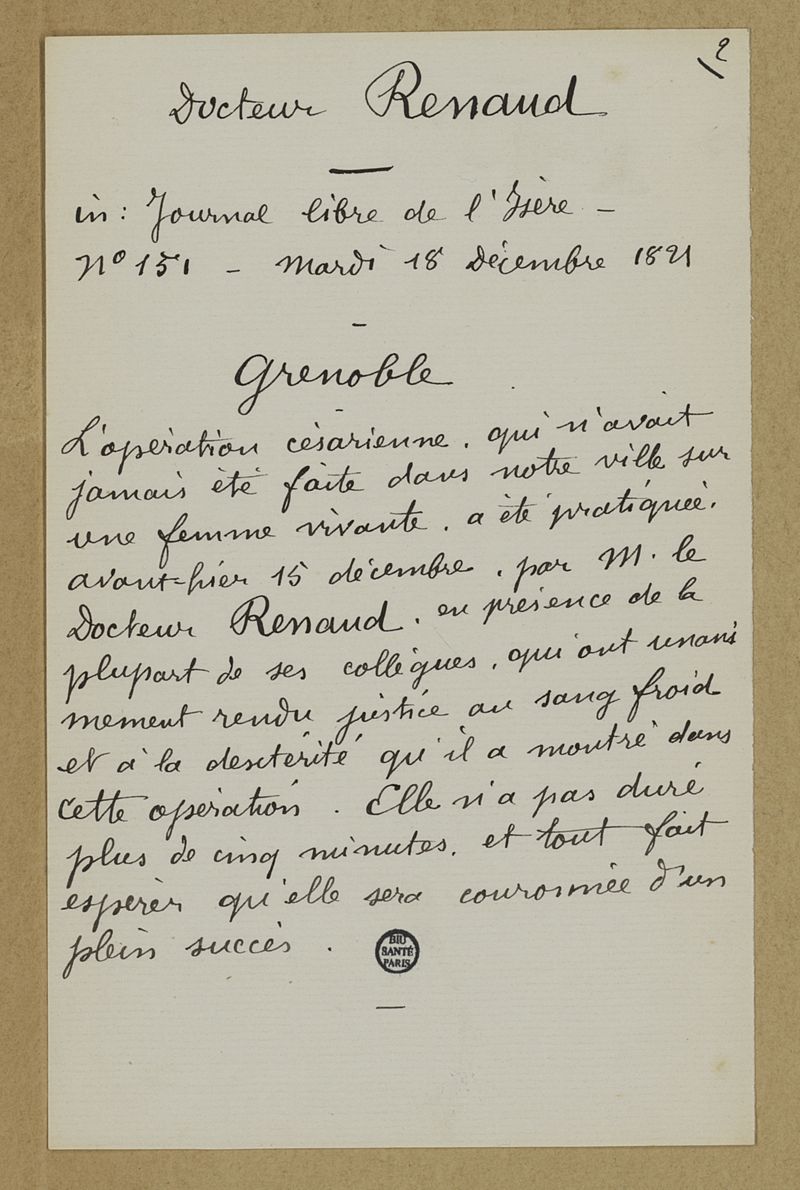 2
Docteur Renaud
in: Journal libre de l'Isère –
N° 151 – Mardi 18 Décembre 1821
Grenoble
L'opération césarienne, qui n'avait
jamais été faite dans notre ville sur
une femme vivante, a été pratiquée,
avant-hier 15 décembre, par M. le
Docteur Renaud, en présence de la
plupart de ses collègues, qui ont unani
mement rendu justice au sang froid
et à la dextérité qu'il a montré dans
cette opération. Elle n'a pas duré
plus de cinq minutes, et tout fait
espérer qu'elle sera couronnée d'un
plein succès.
BIU
SANTÉ
PARIS